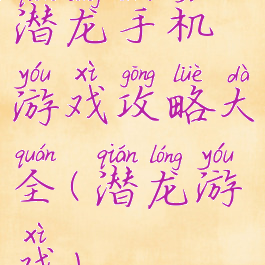 潜龙手机
yóu xì gōng lüè dà
游戏攻略大
quán qián lóng yóu
全(潜龙游
xì
戏)